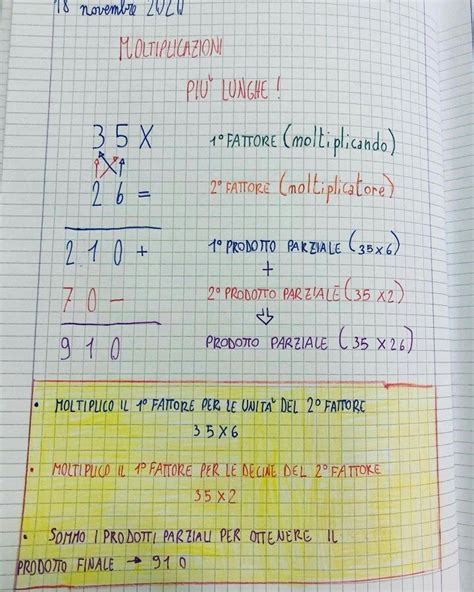 18 novembre 2020
MOLTIPLICAZIONI
PIU' LUNGHE!
35X 1° FATTORE (moltiplicando)
26= 2° FATTORE (moltiplicatore)
210+ 1° PRODOTTO PARZIALE (35x6)
+
70- 2° PRODOTTO PARZIALE (35 X2)
910 PRODOTTO PARZIALE (35 X 26)
• MOLTIPLICO IL 1° FATTORE PER LE UNITA' DEL 2° FATTORE
35X6
• MOLTIPLICO IL 1° FATTORE PER LE DECINE DEL 2° FATTORE
35X2
• SOMMO I PRODOTTI PARZIALI PER OTTENERE IL
PRODOTTO FINALE → 910